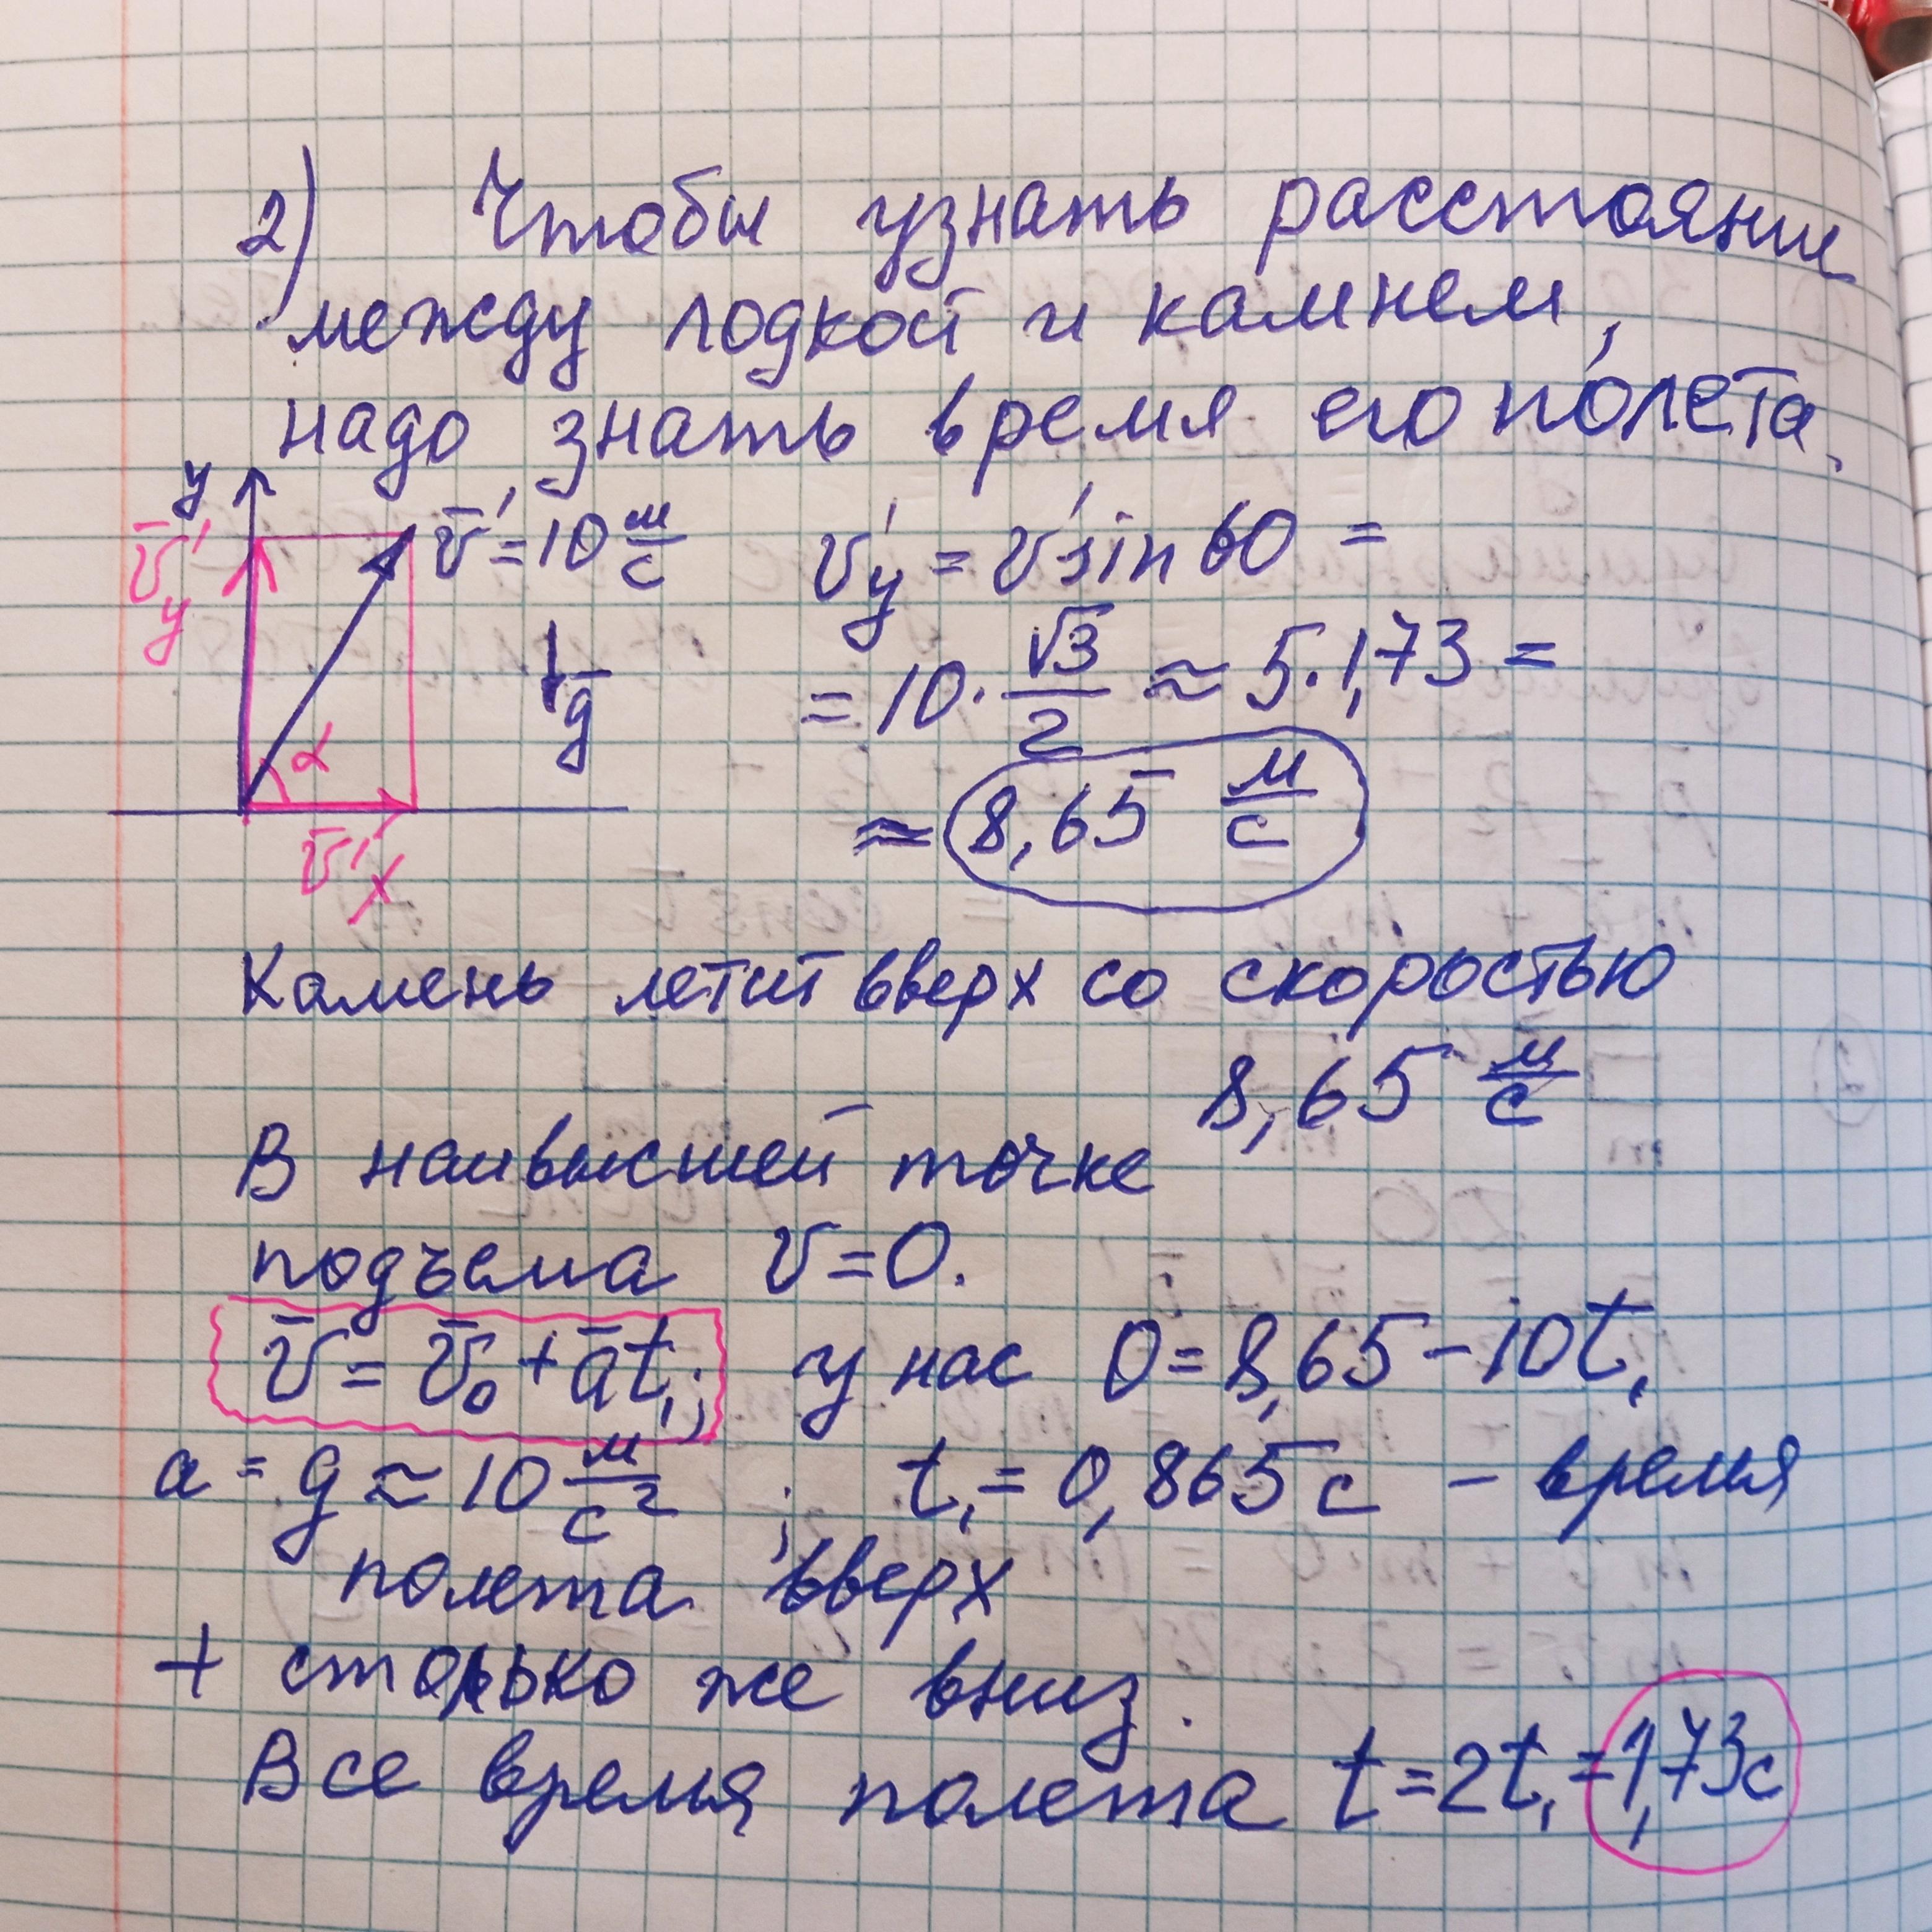 2) Чтобы узнать расстояние
между лодкой и камнем,
надо знать время его полёта.
y
v̄'y
v̄' = 10 м/с
ḡ
α
v̄'x
v'y = v' sin 60 =
= 10 · √3/2 ≈ 5 · 1,73 =
≈ 8,65 м/с
Камень летит вверх со скоростью
8,65 м/с
В наивысшей точке
подъема v = 0.
v̄ = v̄₀ + āt₁; у нас 0 = 8,65 - 10t₁
a = g ≈ 10 м/с² ; t₁ = 0,865 с - время
полета вверх
+ столько же вниз.
Все время полета t = 2t₁ = 1,73 с